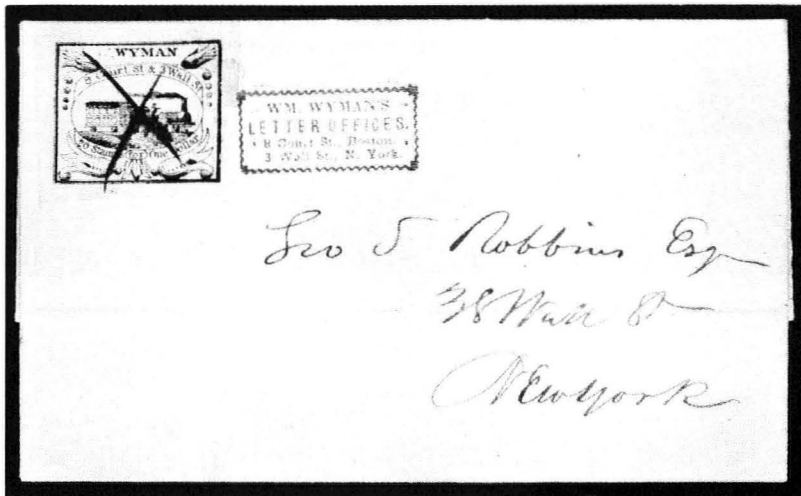 WYMAN
8 Court St & 3 Wall St
20 Stamps for One Dollar
WM. WYMAN'S
LETTER OFFICES.
8 Court St., Boston.
3 Wall St., N. York.
Geo S Robbins Esq
38 Wall St
New York